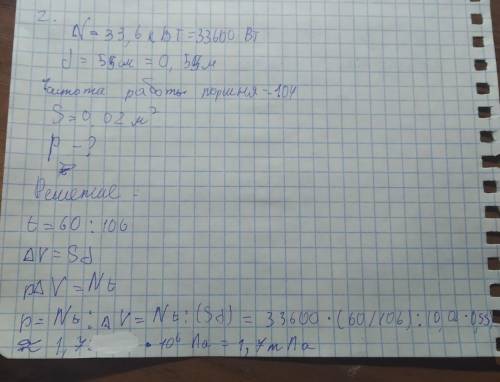 2.
N = 33,6 кВТ = 33600 Вт
d = 55см = 0,55м
Частота работы поршня - 104
S = 0 02 м²
P - ?
Решение -
t = 60 : 106
ΔV = Sd
pΔV = Nt
p = Nt : ΔV = Nt : (Sd) = 33600 · (60/106) : (0,02 · 0,55)
≈ 1,7 · 10⁶ Па = 1,7 мПа